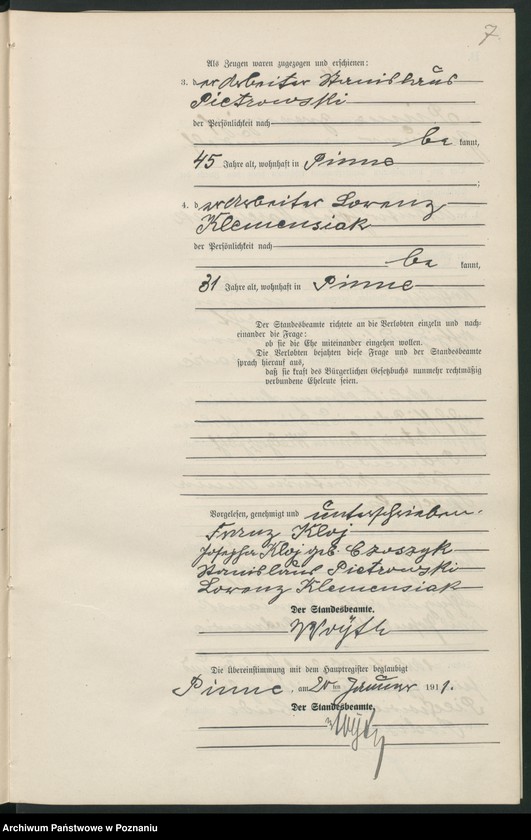 7.
Als Zeugen waren zugezogen und erschienen:
3. der Arbeiter Stanislaus
Pietrowski
der Persönlichkeit nach
be kannt,
45 Jahre alt, wohnhaft in Pinne
;
4. der Arbeiter Lorenz
Klemensiak
der Persönlichkeit nach
be kannt,
31 Jahre alt, wohnhaft in Pinne
Der Standesbeamte richtete an die Verlobten einzeln und nach-
einander die Frage:
ob sie die Ehe miteinander eingehen wollen.
Die Verlobten bejahten diese Frage und der Standesbeamte
sprach hierauf aus,
daß sie kraft des Bürgerlichen Gesetzbuchs nunmehr rechtmäßig
verbundene Eheleute seien.
Vorgelesen, genehmigt und unterschrieben.
Franz Kloj
Josepha Kloj geb. Czoszyk
Stanislaus Pietrowski
Lorenz Klemensiak
Der Standesbeamte.
Woyth
Die Übereinstimmung mit dem Hauptregister beglaubigt
Pinne, am 20 ten Januar 1911.
Der Standesbeamte.
Archiwum Państwowe w Poznaniu